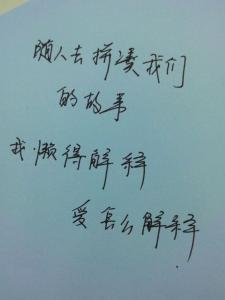 随人去拼凑我们
的故事
我懒得解释
爱怎么解释